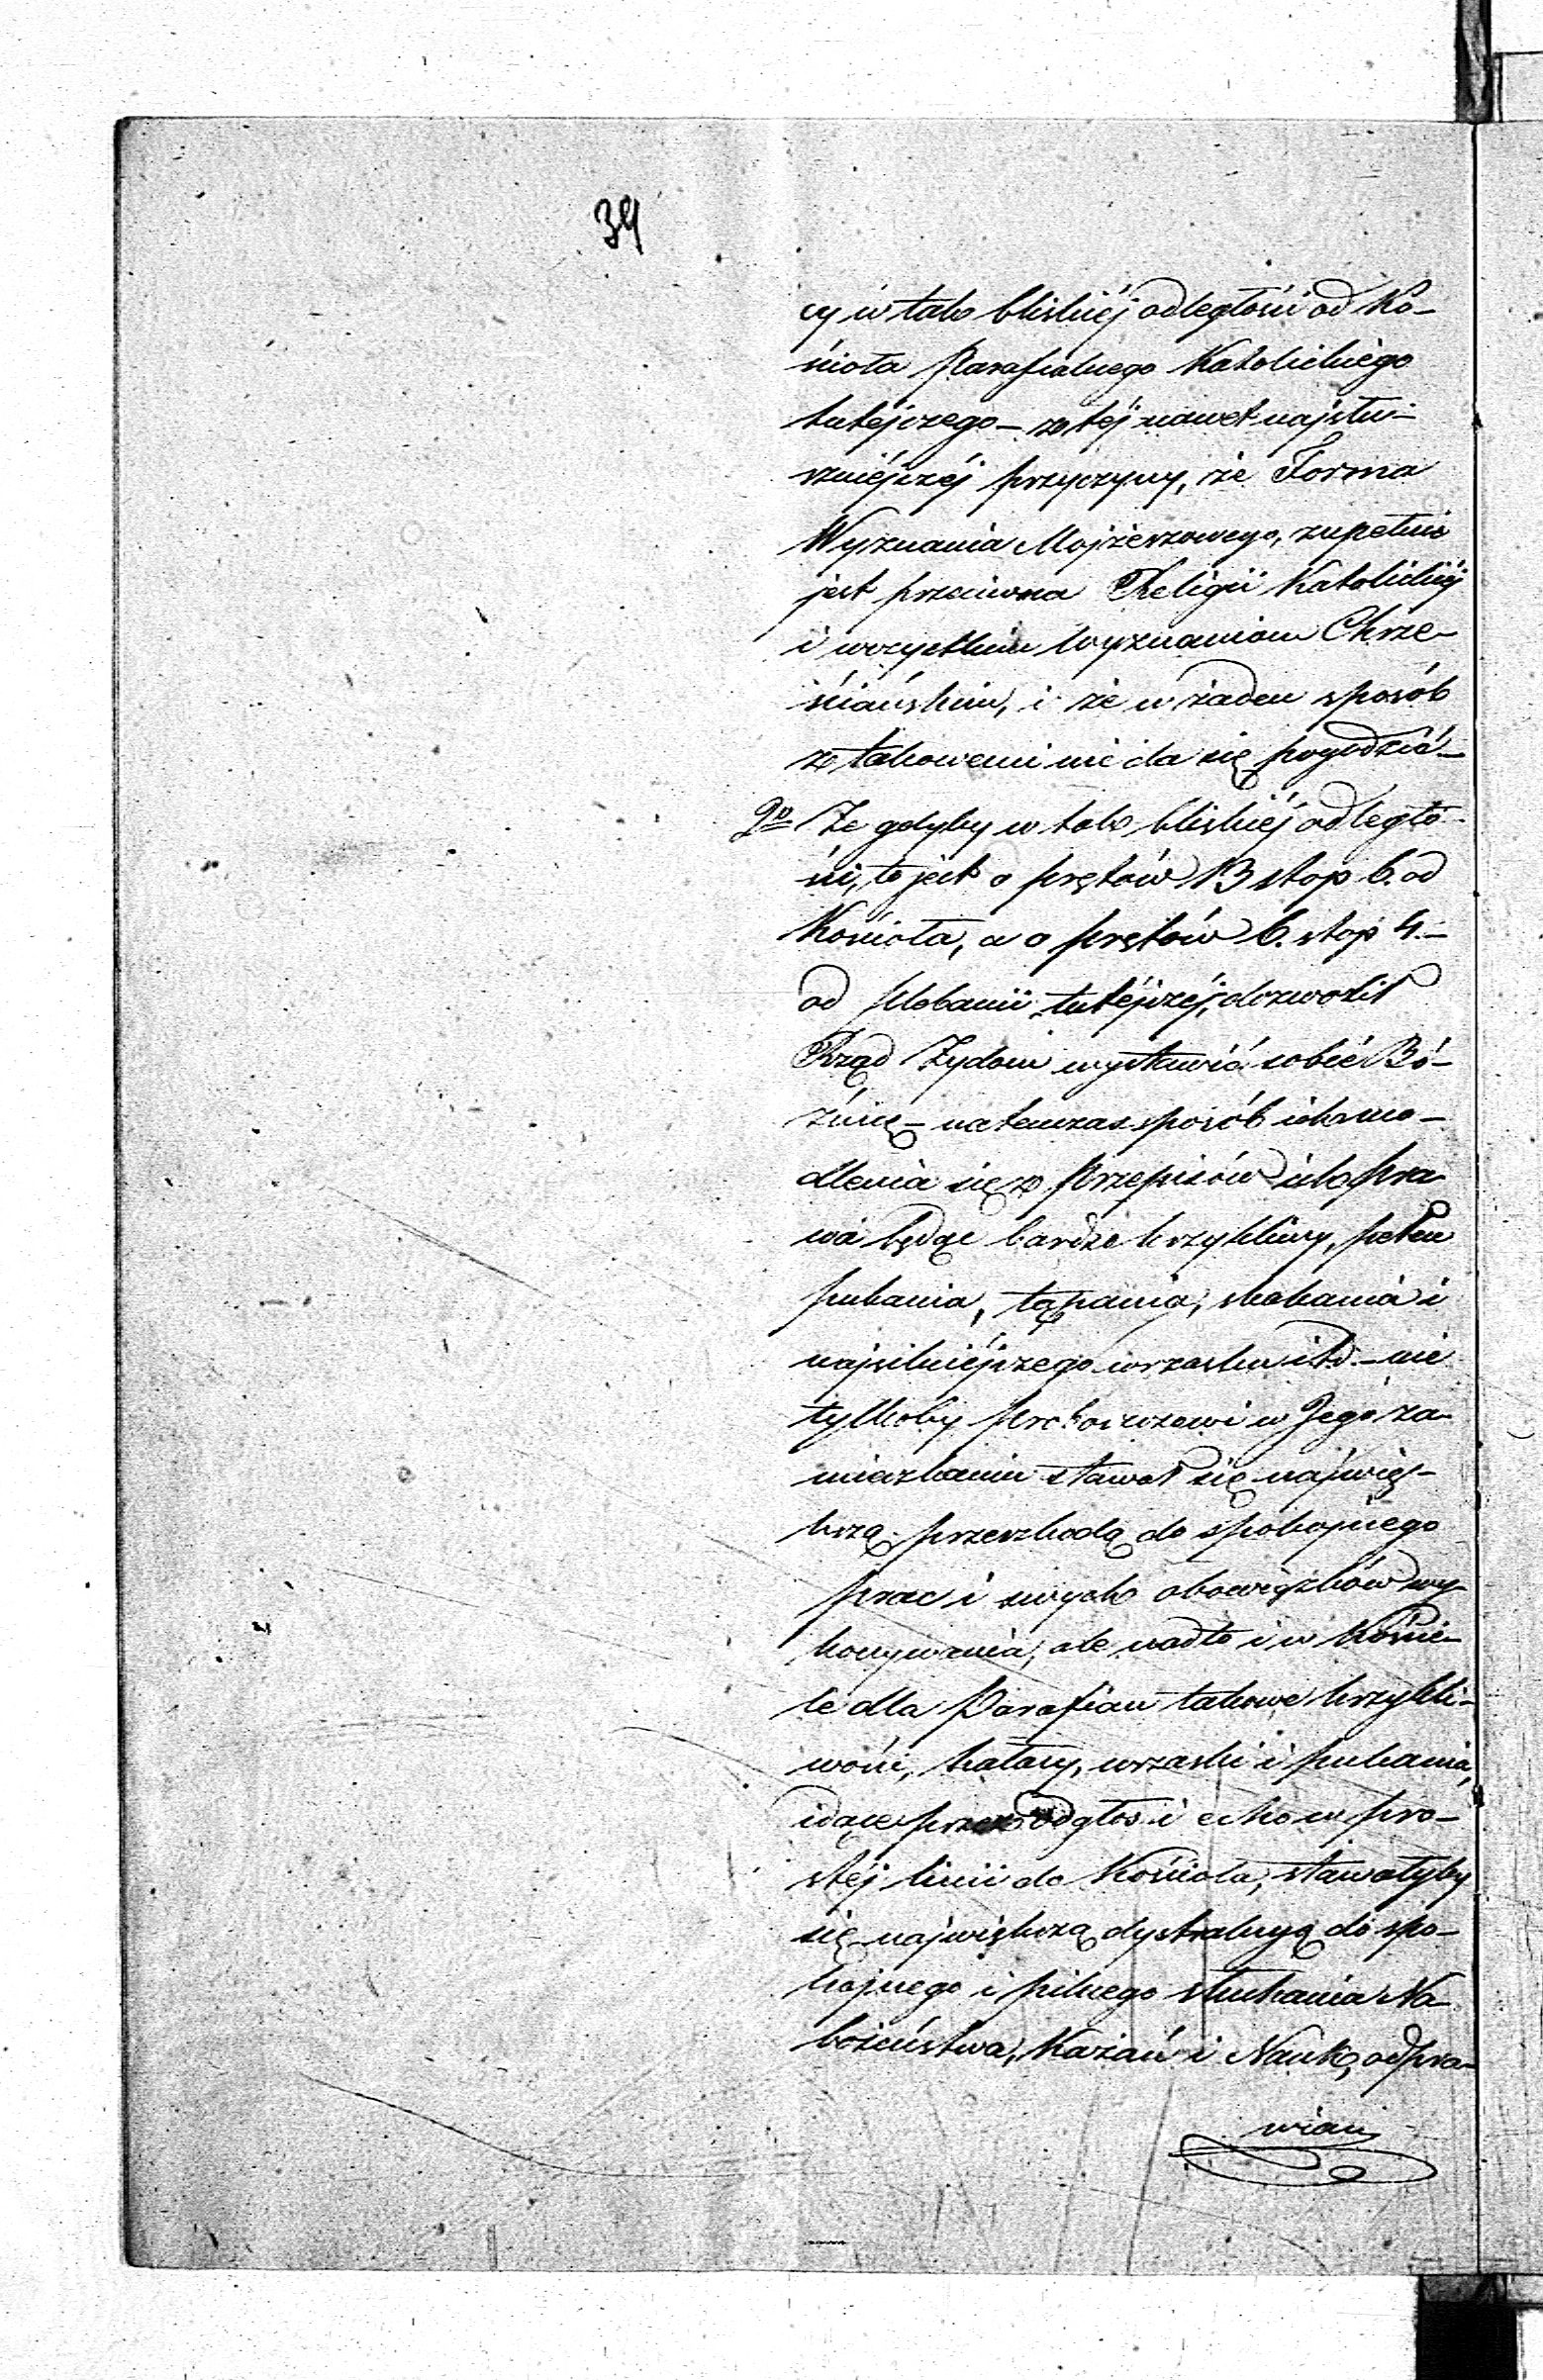 34
cy w tak bliskiéj odległości od Ko-
ścioła Parafialnego Katolickiégo
tutéjszego – z téj nawet najsłu-
szniéjszéj przyczyny, że Forma
Wyznania Mojżeszowego, zupełnie
jest przeciwna Religii Katolickiéj
i wszystkim Wyznaniom Chrze-
ściańskim, i że w żaden sposób
z takowemi nie da się pogodzić –
2do Że gdyby w tak bliskiéj odległo-
ści, to jest o prętów 13 stop 6. od
Kościoła, a o prętów 6. stop 4. –
od plebanii tutéjszéj, dozwolił
Rząd Żydom wystawić sobie Bó-
źnicę – natenczas sposób ich mo-
dlenia się z przepisów ich pra-
wa będąc bardzo krzykliwy, pełen
pukania, tąpania, skakania i
najsilniéjszego wrzasku itd. – nie
tylkoby proboszczowi w Jego za-
mieszkaniu stawał się najwięk-
kszą przeszkodą do spokojnego
prac i swych obowiązków wy-
konywania, ale nadto i w Kościé-
le dla Parafian takowe krzykli-
wości, hałasy, wrzaski i pukania,
idące przez odgłos i echo w pro-
stéj linii do Kościoła, stawałyby
się największą dystrakcyą do spo-
kojnego i pilnego słuchania Na-
bożeństwa, Kazań i Nauk, odpra-
wian